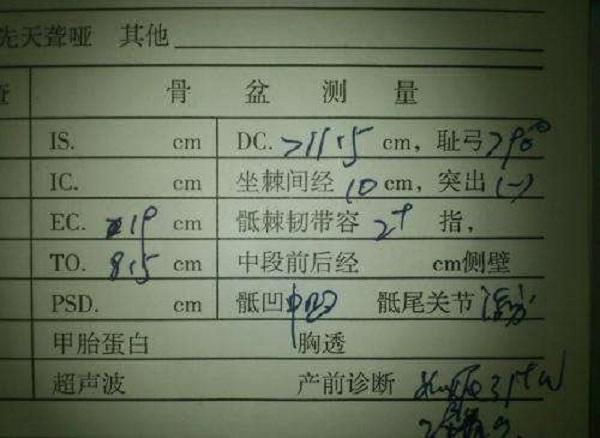 先天聋哑 其他
查 骨盆测量
IS. cm DC. >11.5 cm, 耻弓>90°
IC. cm 坐棘间经 10 cm, 突出(-)
EC. 19 cm 骶棘韧带容 2+ 指,
TO. 8.5 cm 中段前后经 cm侧壁
PSD. cm 骶凹 中凹 骶尾关节
甲胎蛋白 胸透
超声波 产前诊断